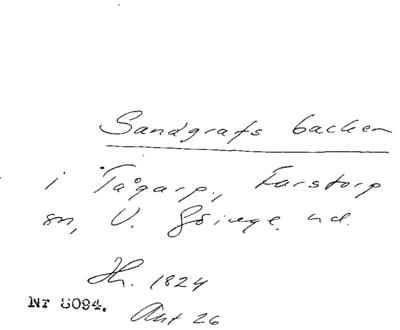 Sandgrafs backen
i Tågarp, Farstorp
sn, V. Göinge hd.
Hr. 1824
Nr 8094. Akt 26